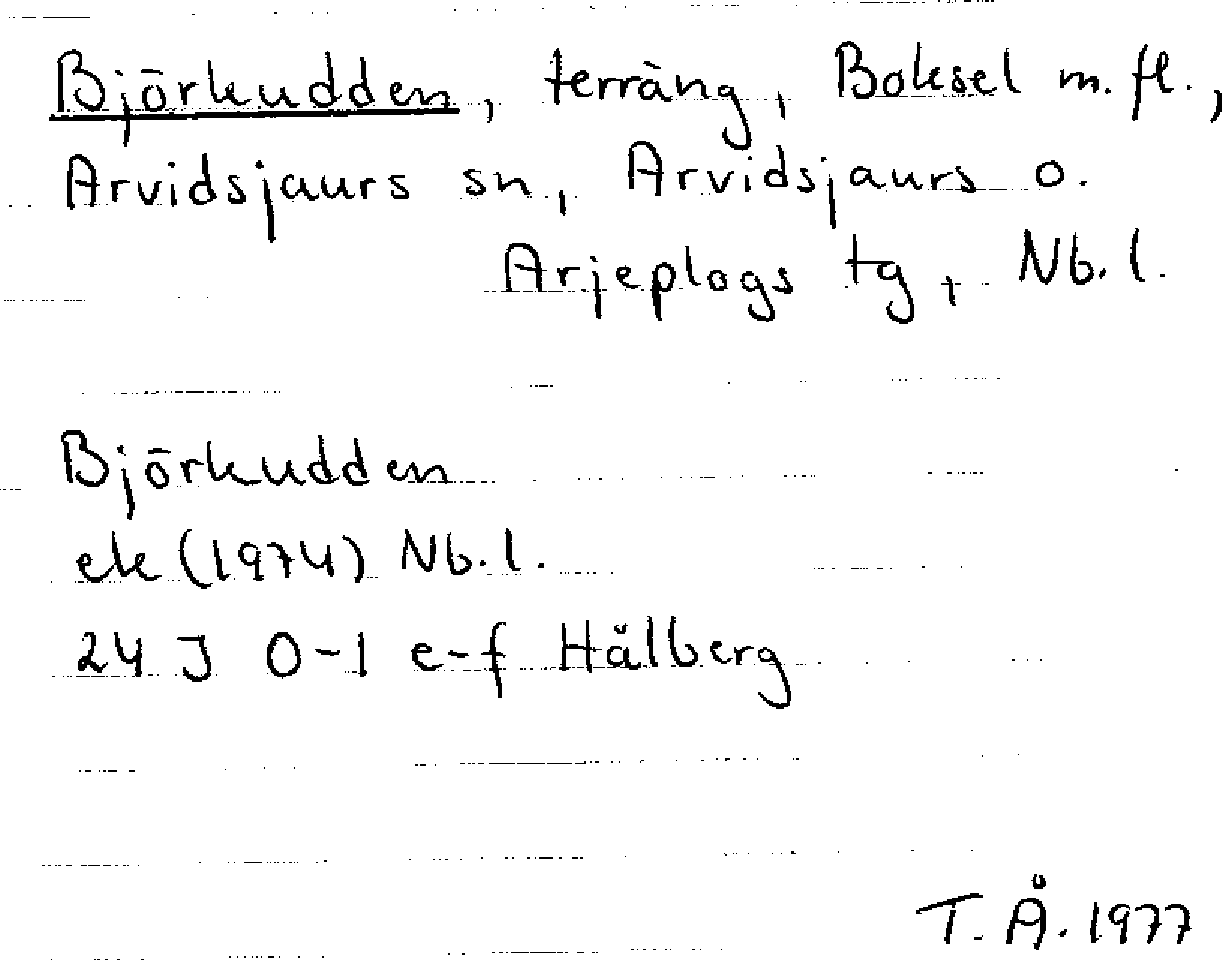 Björkudden, terräng, Boksel m. fl.,
Arvidsjaurs sn, Arvidsjaurs o.
Arjeplogs tg, Nb. l.
Björkudden
ek (1974) Nb. l.
24 J 0-1 e-f Hålberg
T. Å. 1977